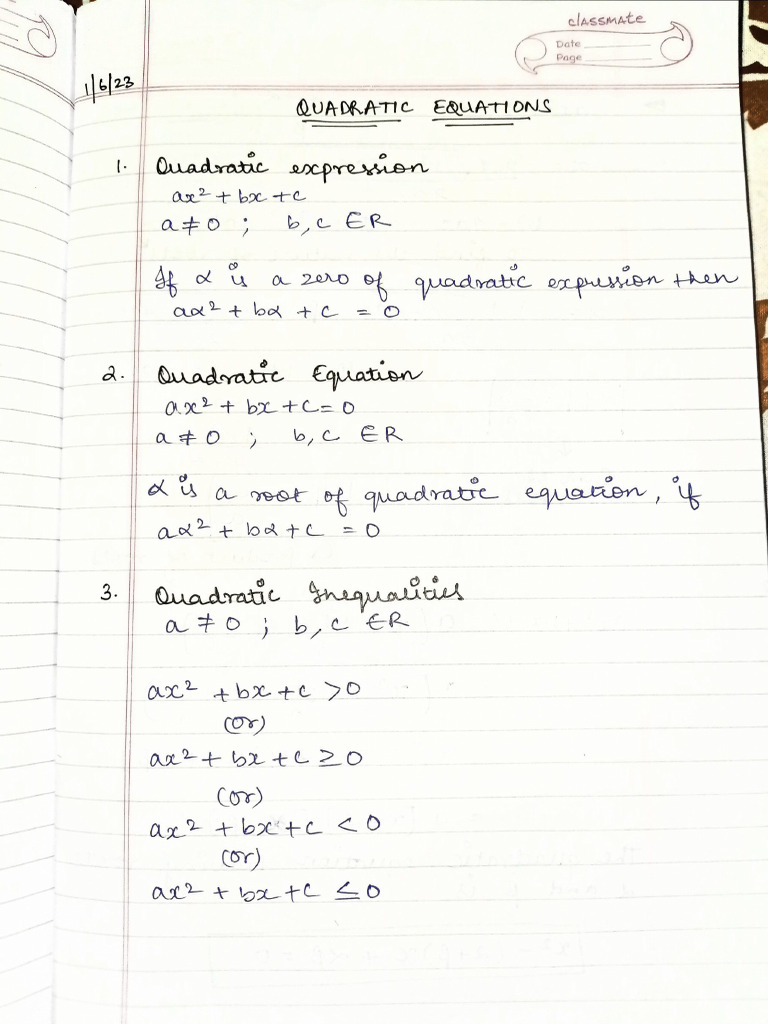 classmate
Date
Page
1/6/23
QUADRATIC EQUATIONS
1. Quadratic expression
ax² + bx + c
a ≠ 0 ; b, c ∈ R
If α is a zero of quadratic expression then
aα² + bα + c = 0
2. Quadratic Equation
ax² + bx + c = 0
a ≠ 0 ; b, c ∈ R
α is a root of quadratic equation, if
aα² + bα + c = 0
3. Quadratic Inequalities
a ≠ 0 ; b, c ∈ R
ax² + bx + c > 0
(or)
ax² + bx + c ≥ 0
(or)
ax² + bx + c < 0
(or)
ax² + bx + c ≤ 0